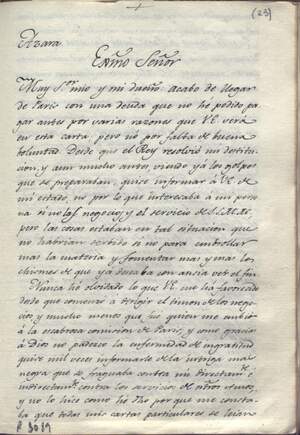 (23)
Azara
Exmo Señor
Muy Sr mio y mi dueño. Acabo de llegar
de Paris con una deuda que no he podido pa-
gar antes por varias razones que VE verá
en esta carta, pero no por falta de buena
voluntad. Desde que el Rey resolvió mi destitu-
cion, y aun mucho antes, viendo ya los golpes
que se preparaban, quise informar á VE de
mi estado, no por lo que interesaba á mi per-
sona si no los negocios y el servicio de S.M.
pero las cosas estaban en tal situacion que
no habrian servido si no para
mas la materia y fomentar mas y mas los
chismes de que ya deseaba con ansia ver el fin.
Nunca he olvidado lo que VE me ha favorecido
desde que comenzó á dirigir el timon de los nego-
cios y mucho menos que fue quien me embió
á la escabrosa comision de Paris, y como gracias
á Dios no padezco la enfermedad de ingratitud,
quise mil veces informarle de la intriga mas
negra que se fraguaba contra mi directamte é
indirectamte contra los servicios de
y no lo hice como he dho por que me consta-
ba que todas mis cartas particulares se leian